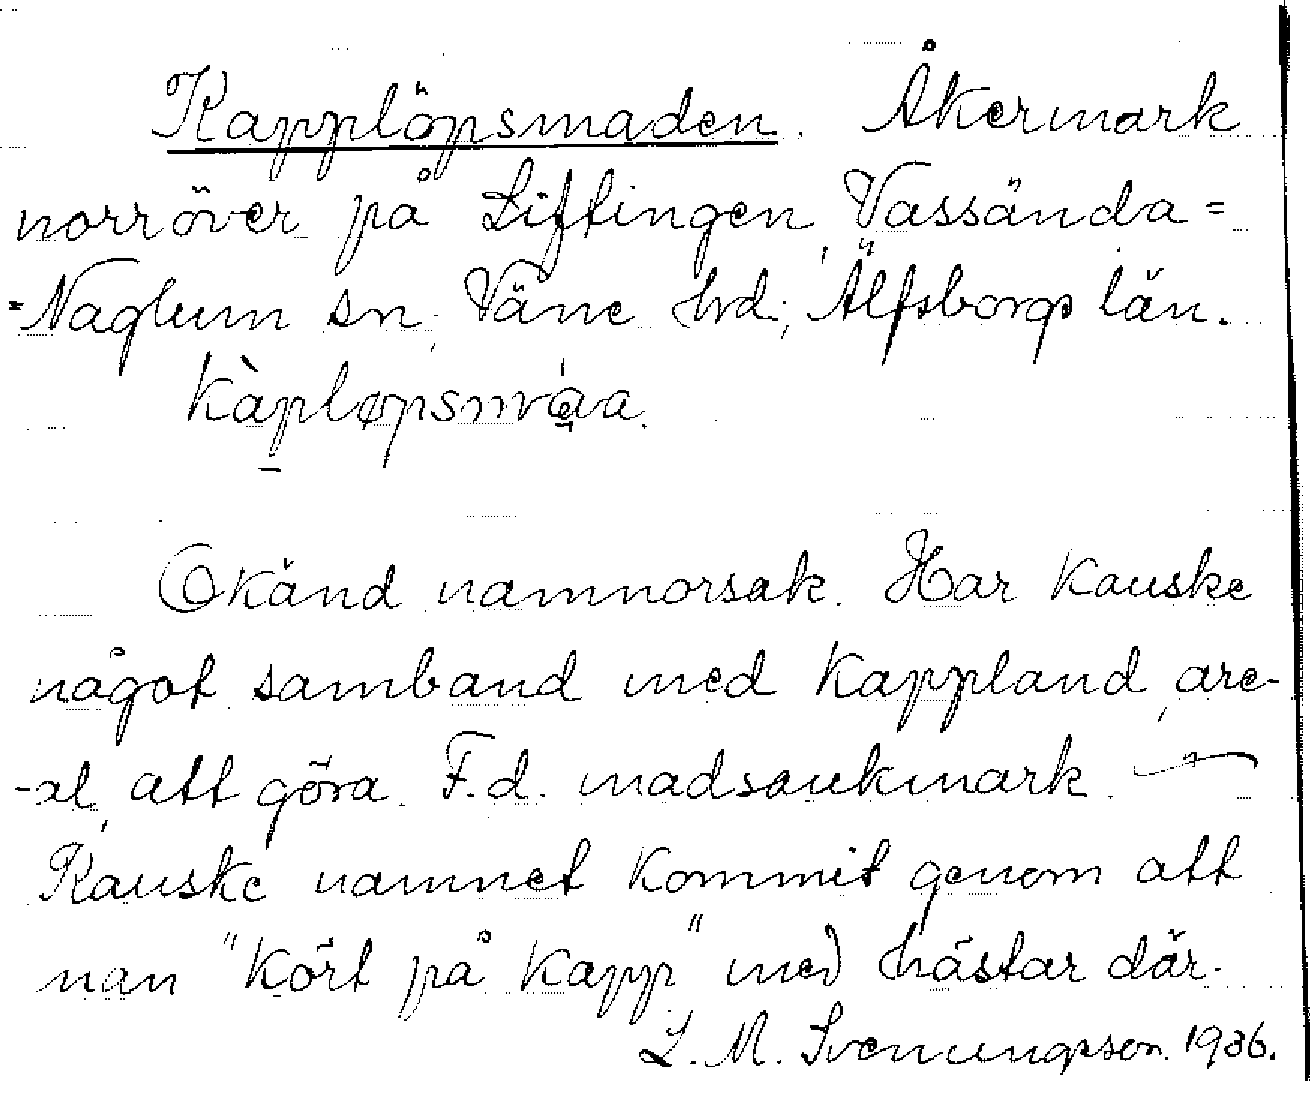 Kapplöpsmaden. Åkermark
norröver på Liftingen, Vassända=
=Naglum sn, Väne hrd; Älfsborgs län.
Okänd namnorsak. Har kanske
något samband med kappland, are-
-al, att göra. F.d. madsankmark. —
Kanske namnet kommit genom att
man "kört på kapp" med hästar där.
L. M. Svenungsson. 1936.